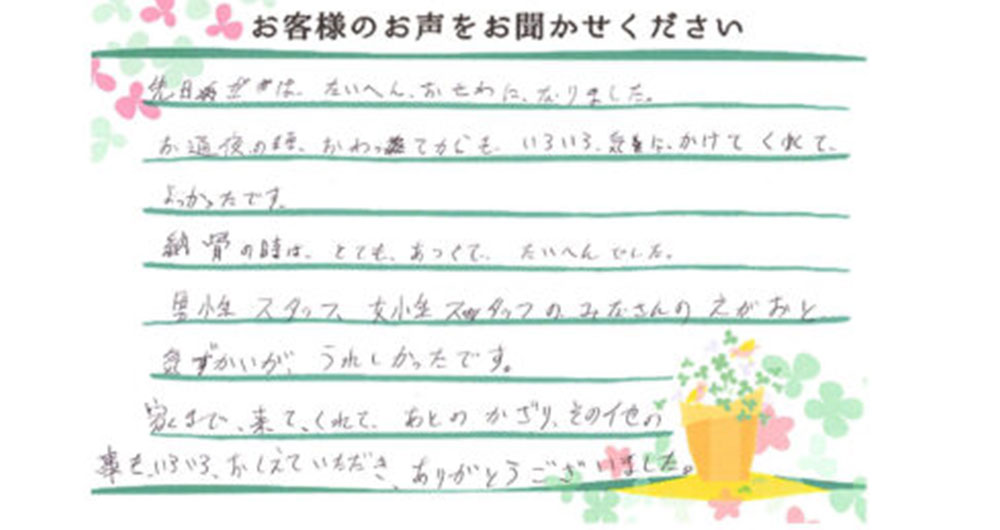 お客様のお声をお聞かせください
先日は、たいへん、おせわに、なりました。
お通夜の時、おわってからも、いろいろ、気に、かけてくれて、
よっかったです。
納骨の時は、とても、あつくて、たいへんでした。
男性スタッフ、女性スタッフの、みなさんのえがおと
気ずかいが、うれしかったです。
家まで、来て、くれて、あとのかざり、その他の
事を、いろいろ、おしえていただき、ありがとうございました。